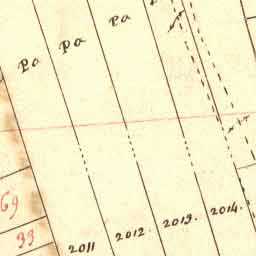 Pa Pa Pa
69
33
2011 2012. 2013. 2014.